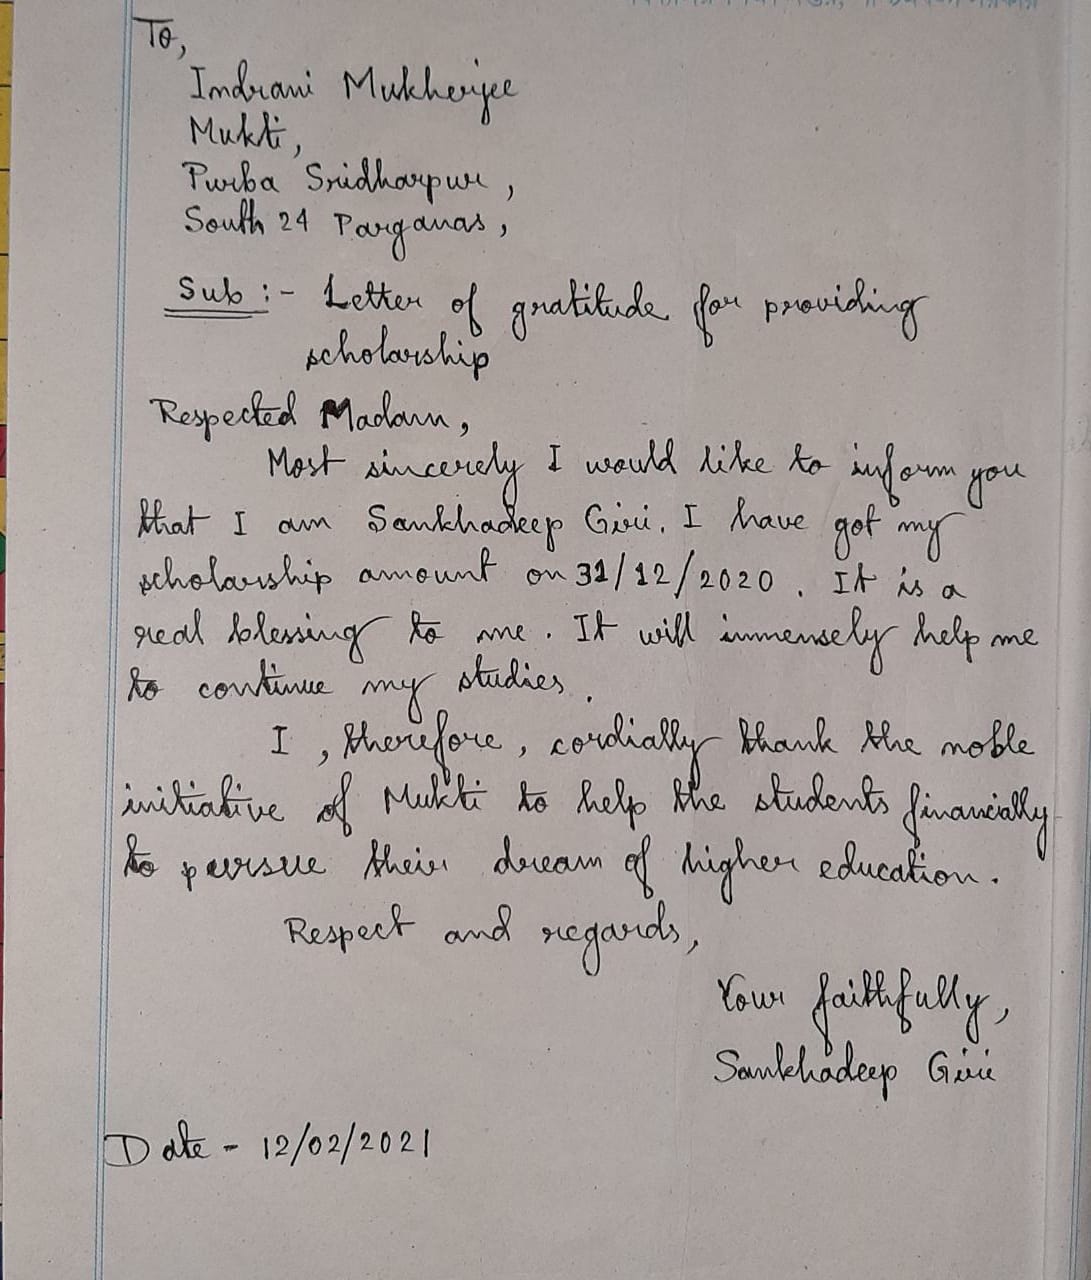 To,
Indrani Mukherjee
Mukti,
Purba Sridharpur,
South 24 Parganas,
Sub :- Letter of gratitude for providing
scholarship
Respected Madam,
Most sincerely I would like to inform you
that I am Sankhadeep Giri. I have got my
scholarship amount on 31/12/2020. It is a
real blessing to me. It will immensely help me
to continue my studies.
I, therefore, cordially thank the noble
initiative of Mukti to help the students financially
to pursue their dream of higher education.
Respect and regards,
Your faithfully,
Sankhadeep Giri
Date - 12/02/2021